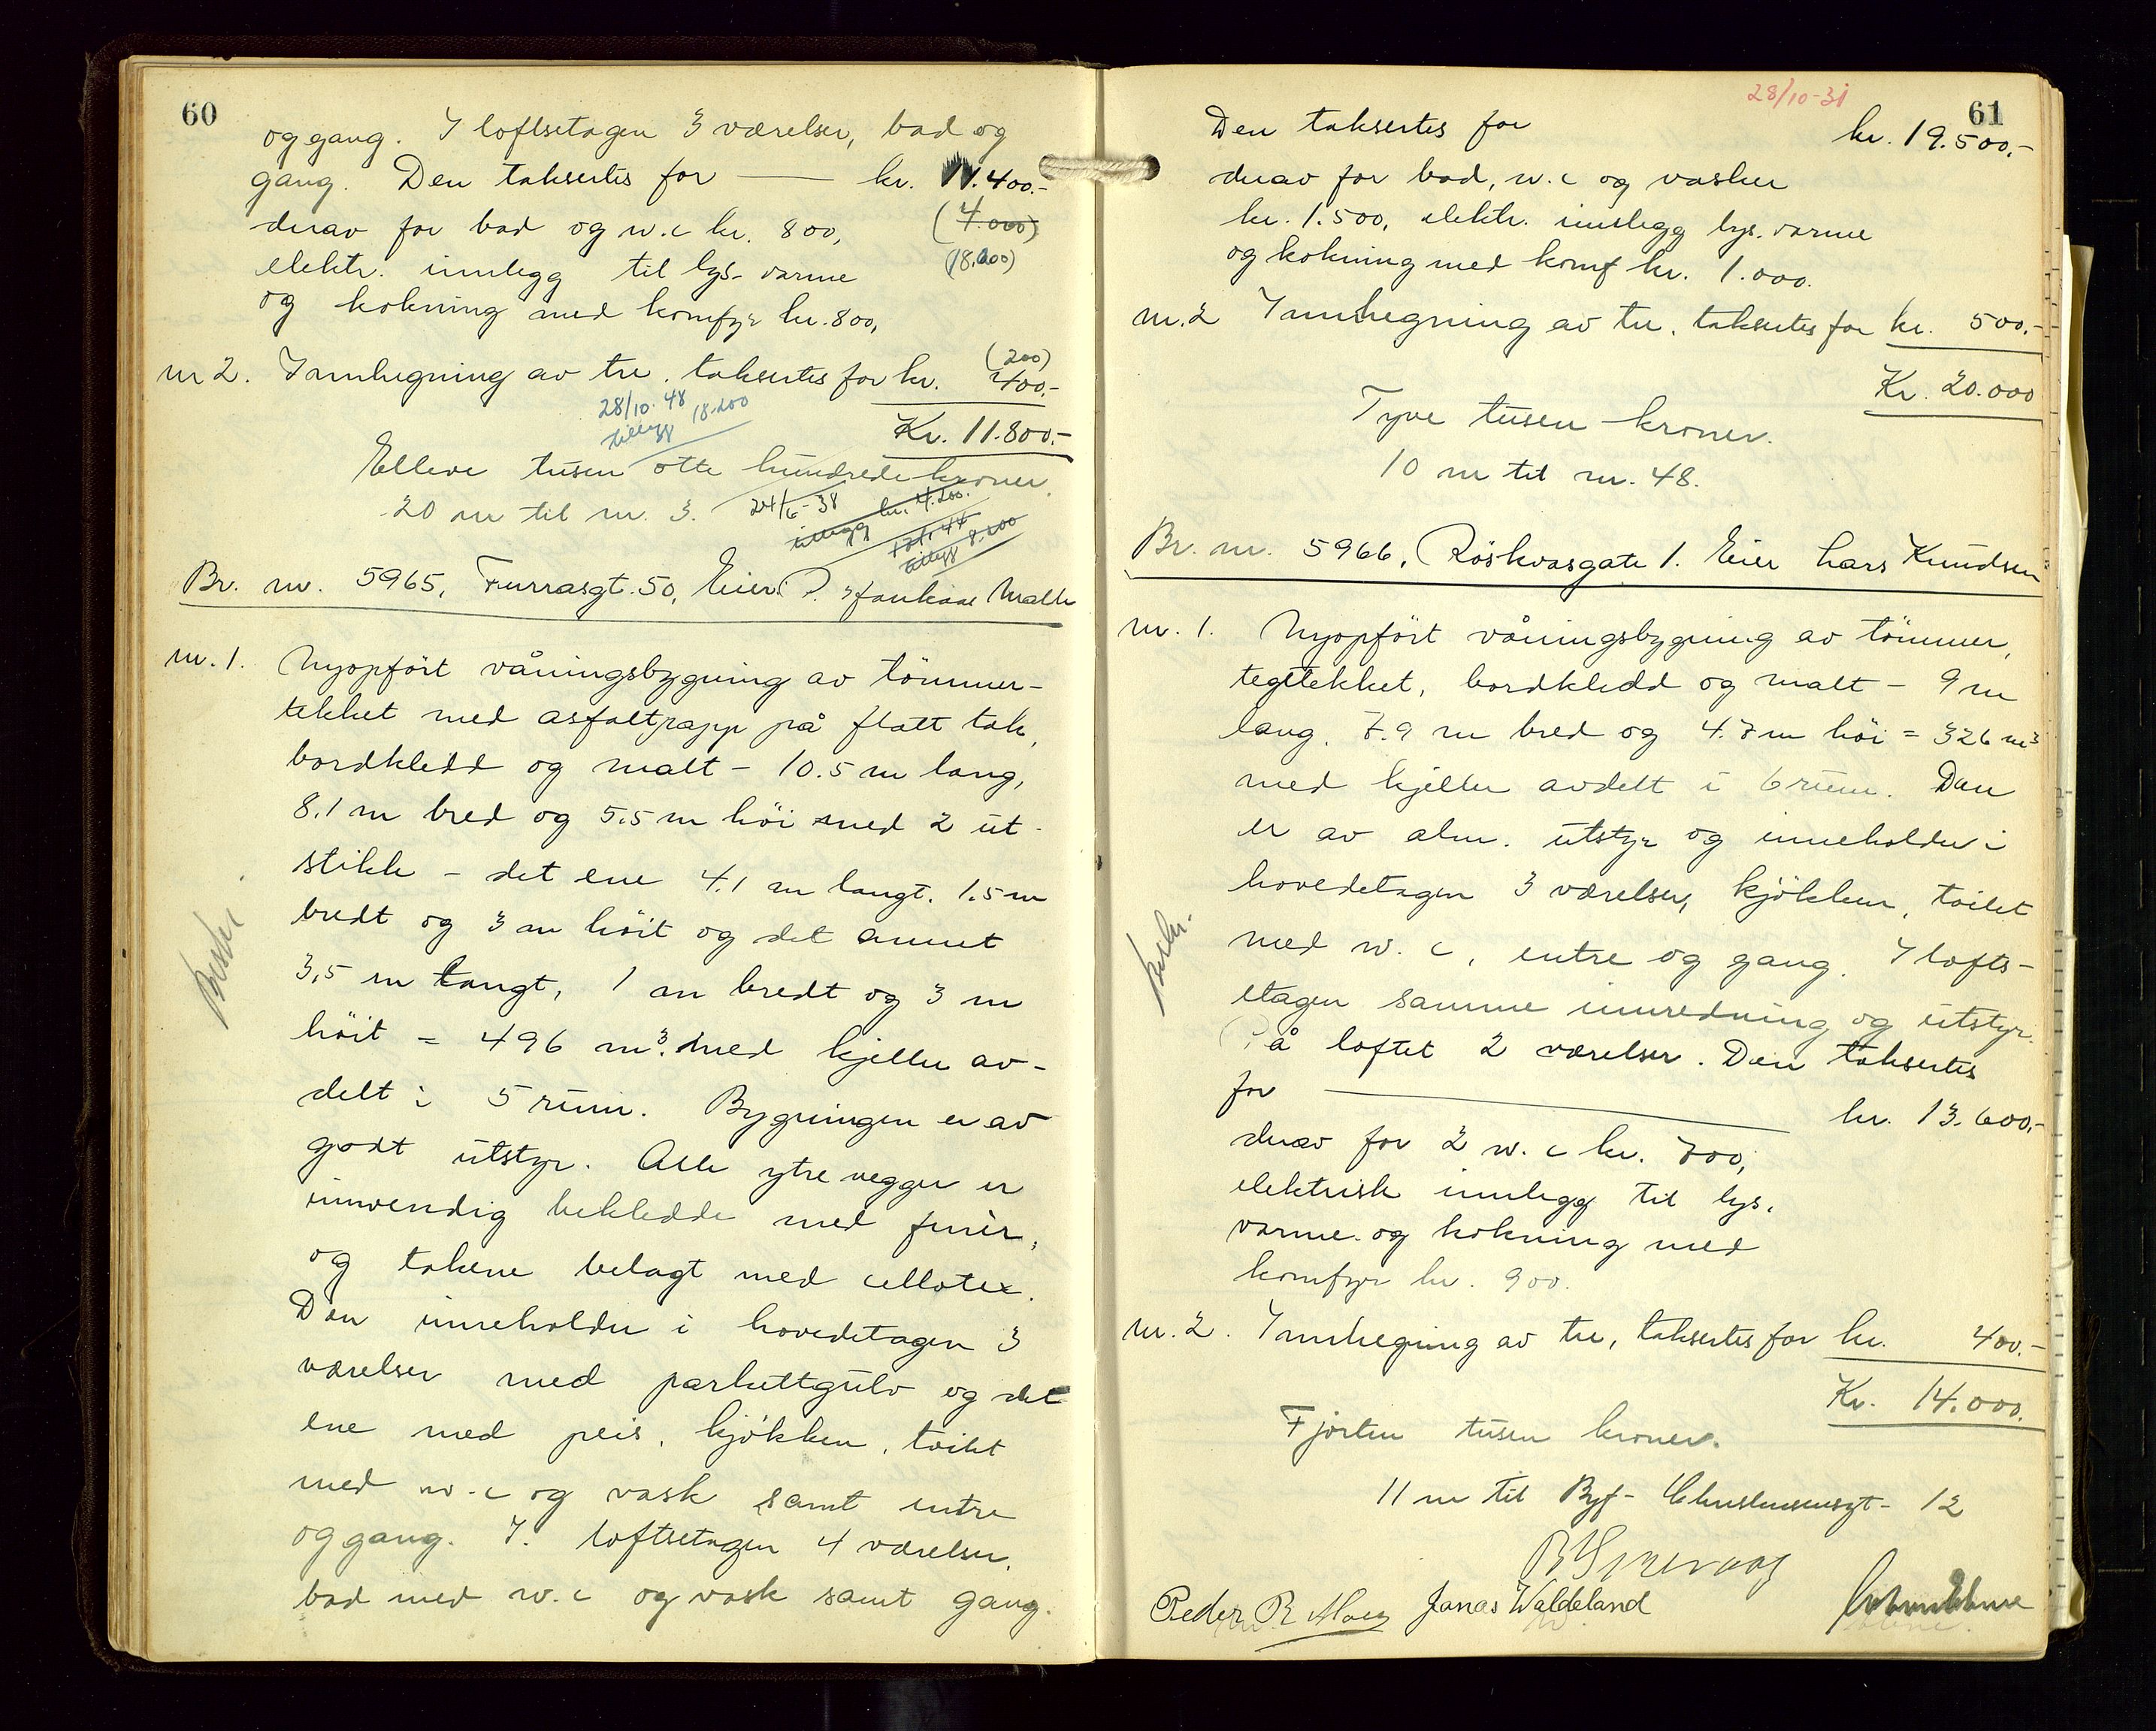 60
og gang. I loftsetagen 3 værelser, bad og
gang. Den taksertes for — kr. 11.400.-
derav for bad og w.c kr. 800, (4.000)
elektr. innlegg til lys- varme (18.000)
og kokning med komfyr kr. 800,
(200)
nr 2. Innhegning av tre, taksertes for kr. 400.-
28/10. 48 18.200
tillegg
Kr. 11.800.-
Elleve tusen otte hundrede kroner.
20 m til nr. 3. 24/6-38
tillegg kr. 4.200.
tillegg 8.200
Br. nr. 5965, Furrasgt. 50, Eier: Malle
nr. 1. Nyopført våningsbygning av tömmer-
tekket med asfaltpapp på flatt tak,
bordkledd og malt - 10.5 m lang,
8.1 m bred og 5.5 m höi med 2 ut-
stikk - det ene 4.1 m langt. 1.5 m
bredt og 3 m höit og det annet
3,5 m langt, 1 m bredt og 3 m
höit = 496 m³. Med kjeller av-
delt i 5 rum. Bygningen er av
godt utstyr. Alle ytre vegger er
innvendig bekledde med finèr,
og takene belagt med cellotex.
Den inneholder i hovedetagen 3
værelser med parkettgulv og det
ene med peis, kjökken, toilet
med w.c og vask samt entre
og gang. I. loftsetagen 4 værelser,
bad med w.c og vask samt gang.
Beskr.
28/10-31
61
Den taksertes for kr. 19.500.-
derav for bad, w.c og vasker
kr. 1.500, elektr. innlegg lys. varme
og kokning med komf kr. 1.000.
nr. 2 Innhegning av tre, taksertes for kr. 500.-
Kr. 20.000
Tyve tusen kroner.
10 m til nr. 48.
Br. nr. 5966, Röskvasgate 1. Eier Lars Knudsen
nr. 1. Nyopfört våningsbygning av tömmer,
tegltekket, bordkledd og malt - 9 m
lang, 7.9 m bred og 4.7 m höi = 326 m³
med kjeller avdelt i 6 rum. Den
er av alm. utstyr og inneholder i
hovedetagen 3 værelser, kjökken, toilet
med w.c, entre og gang. I lofts-
etagen samme innredning og utstyr.
På loftet 2 værelser. Den taksertes
for kr. 13.600.-
derav for 2 w.c kr. 700,
elektrisk innlegg til lys,
varme og kokning med
komfyr kr. 900.
Beskr.
nr. 2. Innhegning av tre, taksertes for kr. 400.-
Kr. 14.000.
Fjorten tusen kroner.
11 m til Byf- Christensensgt- 12
Peder R Moen Jonas Waldeland